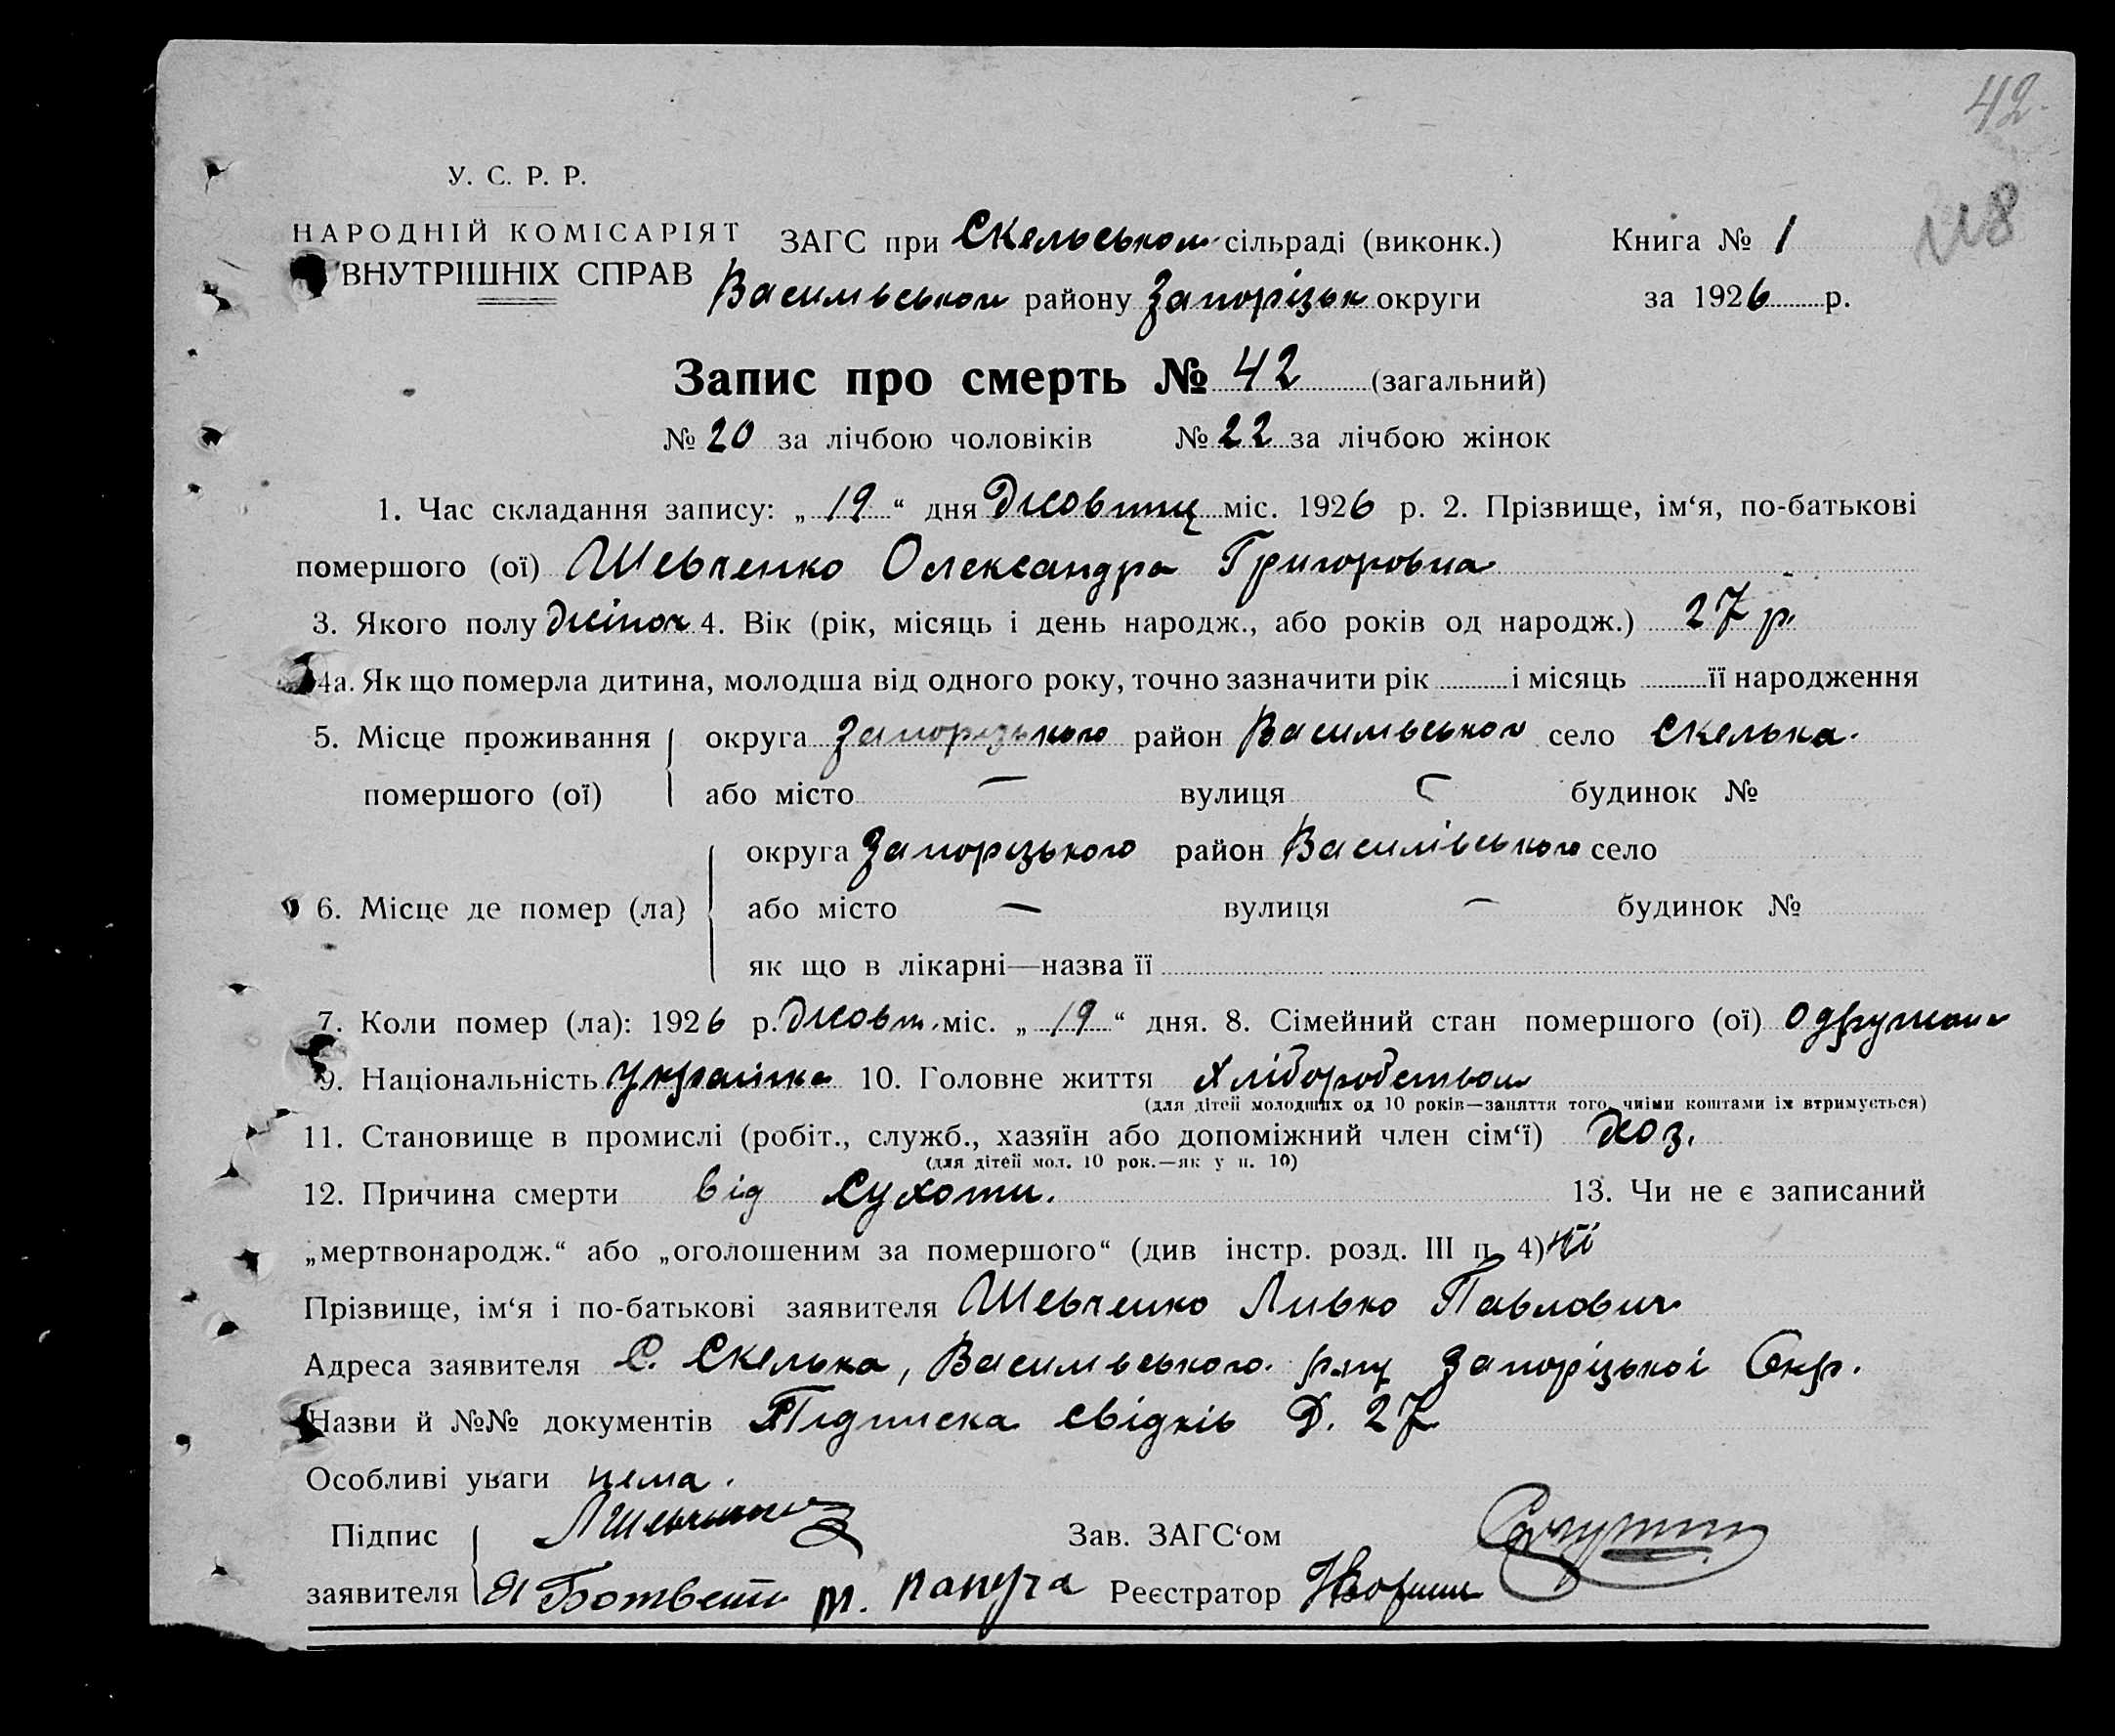 42
118
У. С. Р. Р.
НАРОДНІЙ КОМІСАРІЯТ
ВНУТРІШНІХ СПРАВ
ЗАГС при Скельськом сільраді (виконк.) Книга № 1
Васильвськом району Запорізьк округи за 1926 р.
Запис про смерть № 42 (загальний)
№ 20 за лічбою чоловіків № 22 за лічбою жінок
1. Час складання запису: „ 19 “ дня Жовтня міс. 1926 р. 2. Прізвище, ім‘я, по-батькові
помершого (ої) Шевченко Олександра Григоровна
3. Якого полу жіноч 4. Вік (рік, місяць і день народж., або років од народж.) 27 р.
4а. Як що померла дитина, молодша від одного року, точно зазначити рік і місяць її народження
5. Місце проживання округа Запорізького район Васильвського село Скелька.
помершого (ої) або місто — вулиця — будинок №
округа Запорізького район Василівського село
6. Місце де помер (ла) або місто — вулиця — будинок №
як що в лікарні—назва її
7. Коли помер (ла): 1926 р. Жовт. міс. „ 19 “ дня. 8. Сімейний стан помершого (ої) одружона
9. Національність Українка 10. Головне життя Хліборобством
(для дітей молодших од 10 років—заняття того, чиїми коштами їх втримується)
11. Становище в промислі (робіт., служб., хазяїн або допоміжний член сім‘ї) хоз.
(для дітей мол. 10 рок.—як у п. 10)
12. Причина смерти від Сухоти. 13. Чи не є записаний
„мертвонародж.“ або „оголошеним за помершого“ (див інстр. розд. III п. 4) ні
Прізвище, ім‘я і по-батькові заявителя Шевченко Ливко Павлович
Адреса заявителя С. Скелька, Васильвського р-ну Запорізької Окр.
Назви й №№ документів Підписка свідків Д. 27
Особливі уваги нема.
Підпис Зав. ЗАГС‘ом
заявителя Реєстратор